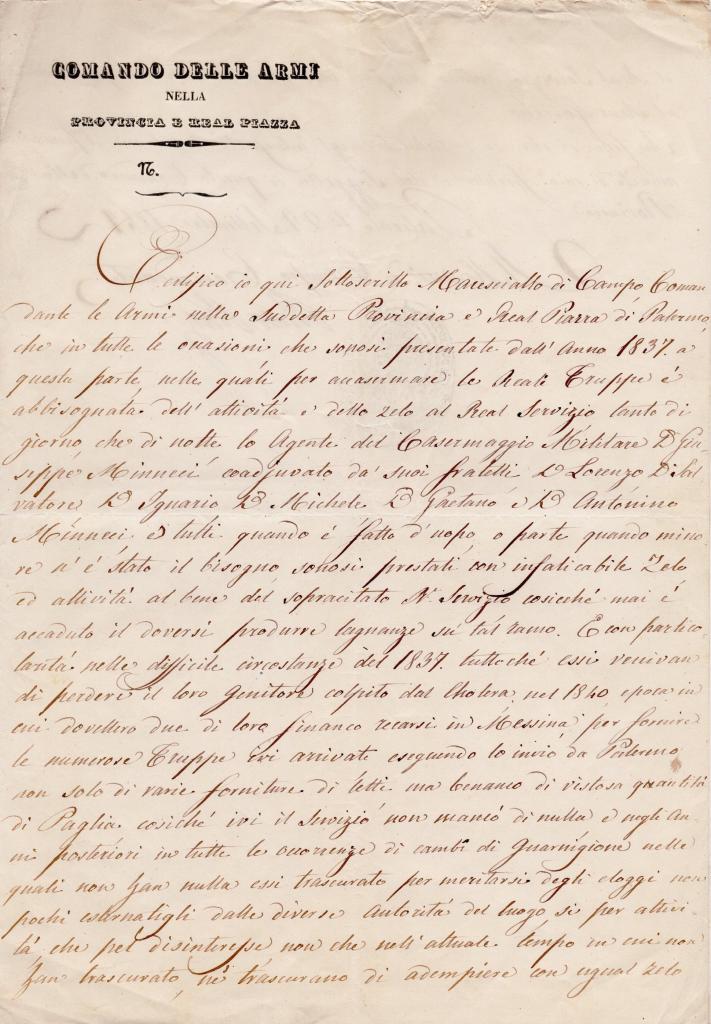 COMANDO DELLE ARMI
NELLA
PROVINCIA E REAL PIAZZA
N.
Certifico io qui Sottoscritto Maresciallo di Campo Coman
dante le Armi nella Suddetta Provincia e Real Piazza di Palermo,
che in tutte le occasioni che sonosi presentate dall' Anno 1837. a
questa parte, nelle quali per accasermare le Reali Truppe é
abbisognata dell' attività e dello zelo al Real Servizio tanto di
giorno che di notte lo Agente del Casermaggio Militare D. Giu-
seppe Minneci coadjuvato da' suoi fratelli D. Lorenzo D. Sal
vatore D. Ignazio D. Michele D. Gaetano e D. Antonino
Minneci e tutti quando é fatto d'uopo, o parte quando mino-
re n' é stato il bisogno sonosi prestati con infaticabile Zelo
ed attività al bene del sopracitato R. Servizio cosicché mai é
accaduto il doversi produrre lagnanze su tal ramo. E con partico-
larità nelle difficile circostanze del 1837. tuttoché essi venivan
di perdere il loro Genitore colpito dal Cholera, nel 1840 epoca in
cui dovettero due di loro financo recarsi in Messina per fornire
le numerose Truppe ivi arrivate eseguendo lo invio da Palermo
non solo di varie forniture di letti ma benanco di vistosa quantità
di Paglia cosiché ivi il Servizio non mancó di nulla e negli An-
ni posteriori in tutte le occorrenze di cambi di Guarnigione nelle
quali non han nulla essi trascurato per meritarsi degli eloggi non
pochi esternatigli dalle diverse Autorità del luogo si per attivi-
tà, che pel disinteresse non che nell' attuale tempo in cui non
han trascurato, né trascurano di adempiere con ugual zelo